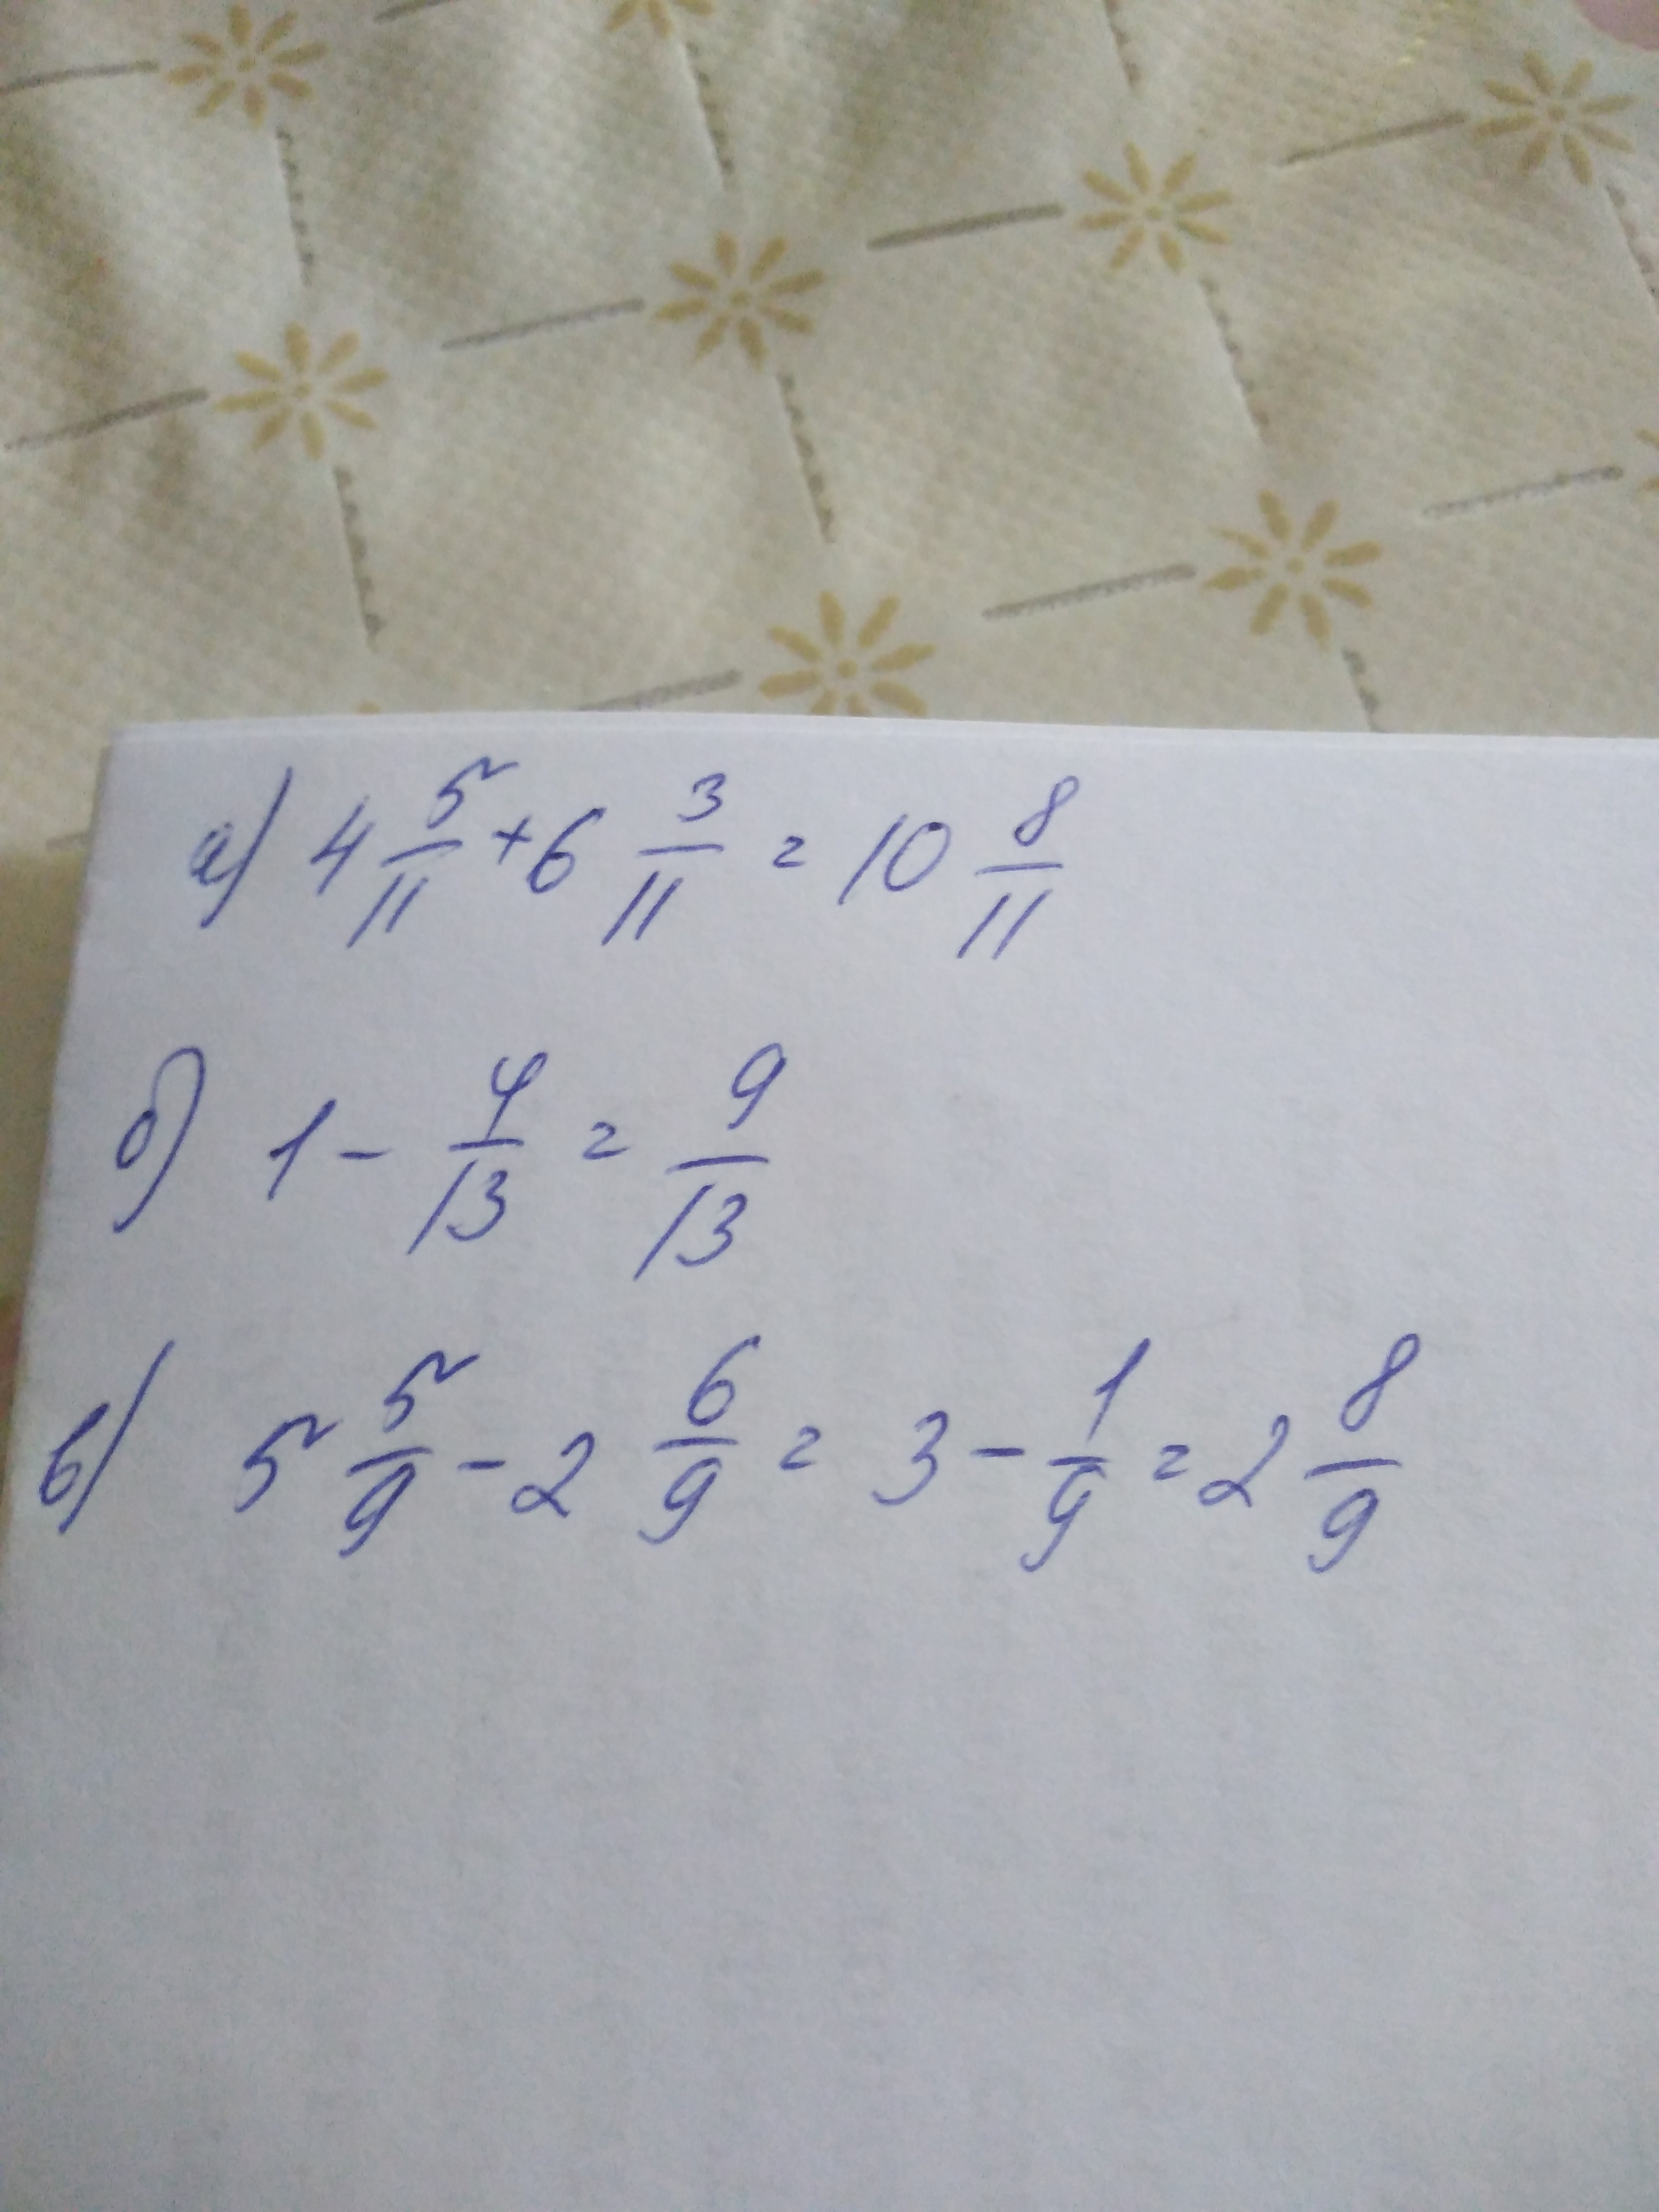 а) 4 5/11 + 6 3/11 = 10 8/11
б) 1 - 4/13 = 9/13
в) 5 5/9 - 2 6/9 = 3 - 1/9 = 2 8/9